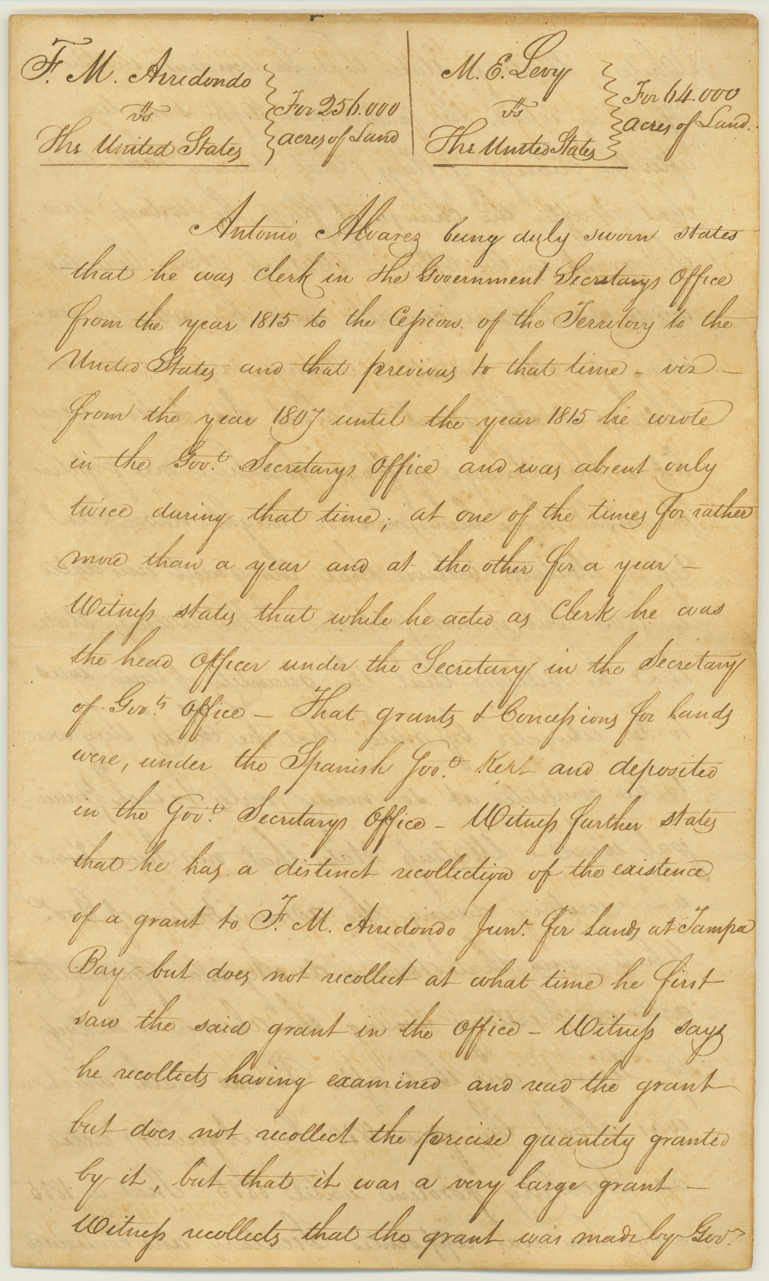 F. M. Arredondo
vs
The United States
For 256.000
acres of Land
M. E. Levy
vs
The United States
For 64.000
acres of Land.
Antonio Alvarez being duly sworn states
that he was clerk in the Government Secretarys Office
from the year 1815 to the Cession of the Territory to the
United States and that previous to that time - viz -
from the year 1807 until the year 1815 he wrote
in the Govt. Secretarys Office and was absent only
twice during that time; at one of the times for rather
more than a year and at the other for a year -
Witness states that while he acted as Clerk he was
the head Officer under the Secretary in the Secretary
of Govts Office - That grants & Concessions for Lands
were, under the Spanish Govt. Kept and deposited
in the Govt. Secretarys Office - Witness further states
that he has a distinct recollection of the existence
of a grant to F. M. Arredondo Junr. for Lands at Tampa
Bay but does not recollect at what time he first
saw the said grant in the Office - Witness says
he recollects having examined and read the grant
but does not recollect the precise quantity granted
by it, but that it was a very large grant -
Witness recollects that the grant was made by Govr.